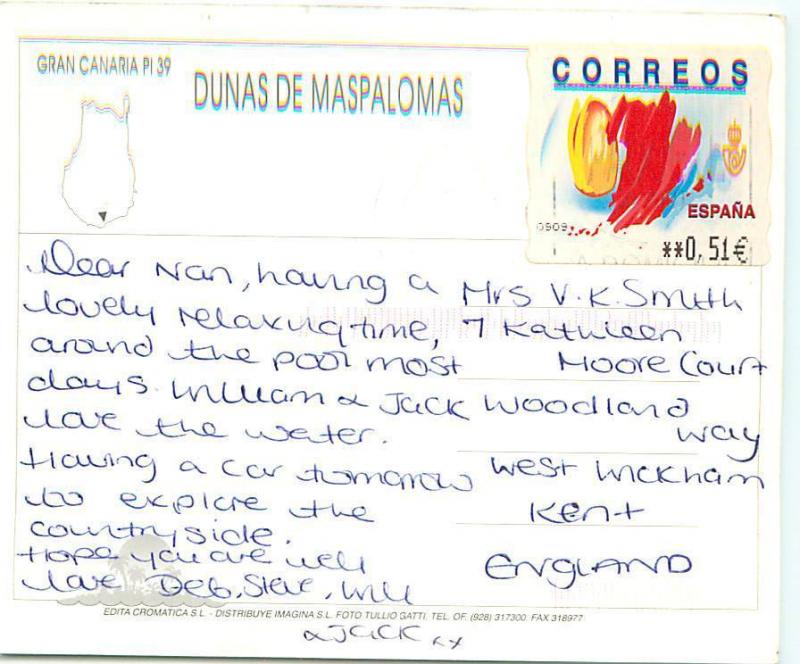 GRAN CANARIA PI 39
DUNAS DE MASPALOMAS
CORREOS
ESPAÑA
0909
**0,51€
Dear Nan, having a
lovely relaxing time,
around the pool most
days. William & Jack
love the water.
Having a car tomorrow
to explore the
countryside.
Hope you are well
love Deb, Steve, Will
& Jack xx
Mrs V.K. Smith
7 Kathleen
Moore Court
Woodland
way
West Wickham
Kent
ENGLAND
EDITA CROMATICA S.L. - DISTRIBUYE IMAGINA S.L. FOTO TULLIO GATTI. TEL. OF. (928) 317300. FAX 318977